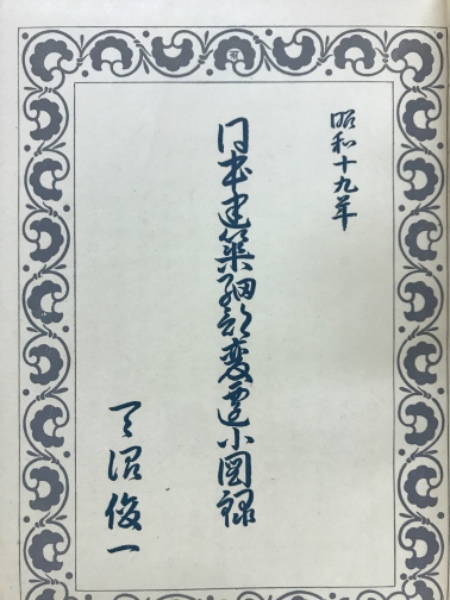 昭和十九年
日本建築細部変遷小図録
天沼俊一